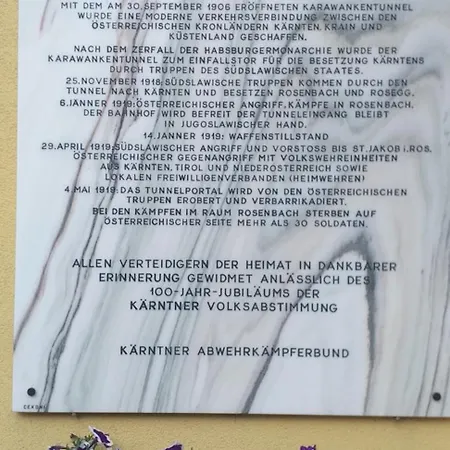 MIT DEM AM 30. SEPTEMBER 1906 ERÖFFNETEN KARAWANKENTUNNEL
WURDE EINE MODERNE VERKEHRSVERBINDUNG ZWISCHEN DEN
ÖSTERREICHISCHEN KRONLÄNDERN KÄRNTEN, KRAIN UND
KÜSTENLAND GESCHAFFEN.
NACH DEM ZERFALL DER HABSBURGERMONARCHIE WURDE DER
KARAWANKENTUNNEL ZUM EINFALLSTOR FÜR DIE BESETZUNG KÄRNTENS
DURCH TRUPPEN DES SÜDSLAWISCHEN STAATES.
25. NOVEMBER 1918: SÜDSLAWISCHE TRUPPEN KOMMEN DURCH DEN
TUNNEL NACH KÄRNTEN UND BESETZEN ROSENBACH UND ROSEGG.
6. JÄNNER 1919: ÖSTERREICHISCHER ANGRIFF, KÄMPFE IN ROSENBACH.
DER BAHNHOF WIRD BEFREIT DER TUNNELEINGANG BLEIBT
IN JUGOSLAWISCHER HAND.
14. JÄNNER 1919: WAFFENSTILLSTAND
29. APRIL 1919: SÜDSLAWISCHER ANGRIFF UND VORSTOSS BIS ST. JAKOB I. ROS.
ÖSTERREICHISCHER GEGENANGRIFF MIT VOLKSWEHREINHEITEN
AUS KÄRNTEN, TIROL UND NIEDERÖSTERREICH SOWIE
LOKALEN FREIWILLIGENVERBÄNDEN (HEIMWEHREN)
4. MAI 1919: DAS TUNNELPORTAL WIRD VON DEN ÖSTERREICHISCHEN
TRUPPEN EROBERT UND VERBARRIKADIERT.
BEI DEN KÄMPFEN IM RAUM ROSENBACH STERBEN AUF
ÖSTERREICHISCHER SEITE MEHR ALS 30 SOLDATEN.
ALLEN VERTEIDIGERN DER HEIMAT IN DANKBARER
ERINNERUNG GEWIDMET ANLÄSSLICH DES
100-JAHR-JUBILÄUMS DER
KÄRNTNER VOLKSABSTIMMUNG
KÄRNTNER ABWEHRKÄMPFERBUND